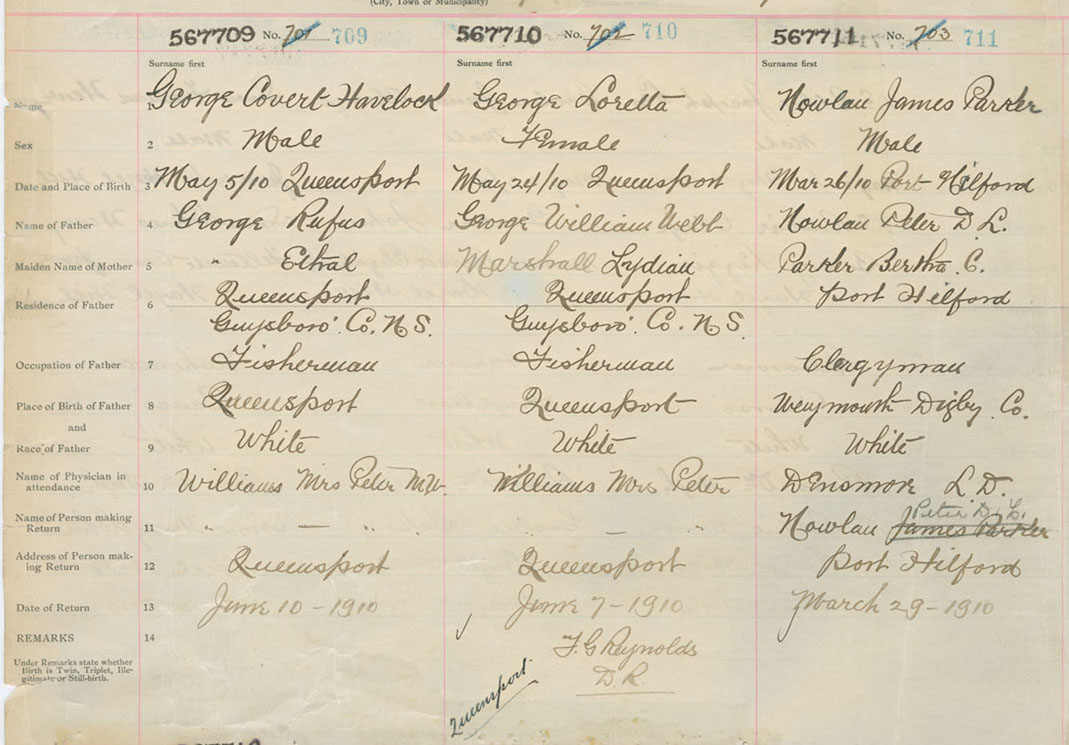 (City, Town or Municipality)
567709 No. 701 709 567710 No. 702 710 567711 No. 703 711
Surname first Surname first Surname first
Name 1 George Covert Havelock George Loretta Nowlan James Parker
Sex 2 Male Female Male
Date and Place of Birth 3 May 5/10 Queensport May 24/10 Queensport Mar 26/10 Port Hilford
Name of Father 4 George Rufus George William Webb Nowlan Peter D. L.
Maiden Name of Mother 5 " Ethal Marshall Lydian Parker Bertha C.
Residence of Father 6 Queensport Queensport Port Hilford
Guysboro' Co. N S. Guysboro' Co. N S.
Occupation of Father 7 Fisherman Fisherman Clergyman
Place of Birth of Father 8 Queensport Queensport Weymouth Digby Co.
and
Race of Father 9 White White White
Name of Physician in
attendance 10 Williams Mrs Peter M.W. Williams Mrs Peter Densmore L D.
Peter D. L.
Name of Person making
Return 11 " — " " — " Nowlan James Parker
Address of Person mak-
ing Return 12 Queensport Queensport Port Hilford
Date of Return 13 June 10 - 1910 June 7 - 1910 March 29 - 1910
REMARKS 14
F. G Reynolds
D. R.
Under Remarks state whether
Birth is Twin, Triplet, Ille-
gitimate or Still-birth.
Queensport